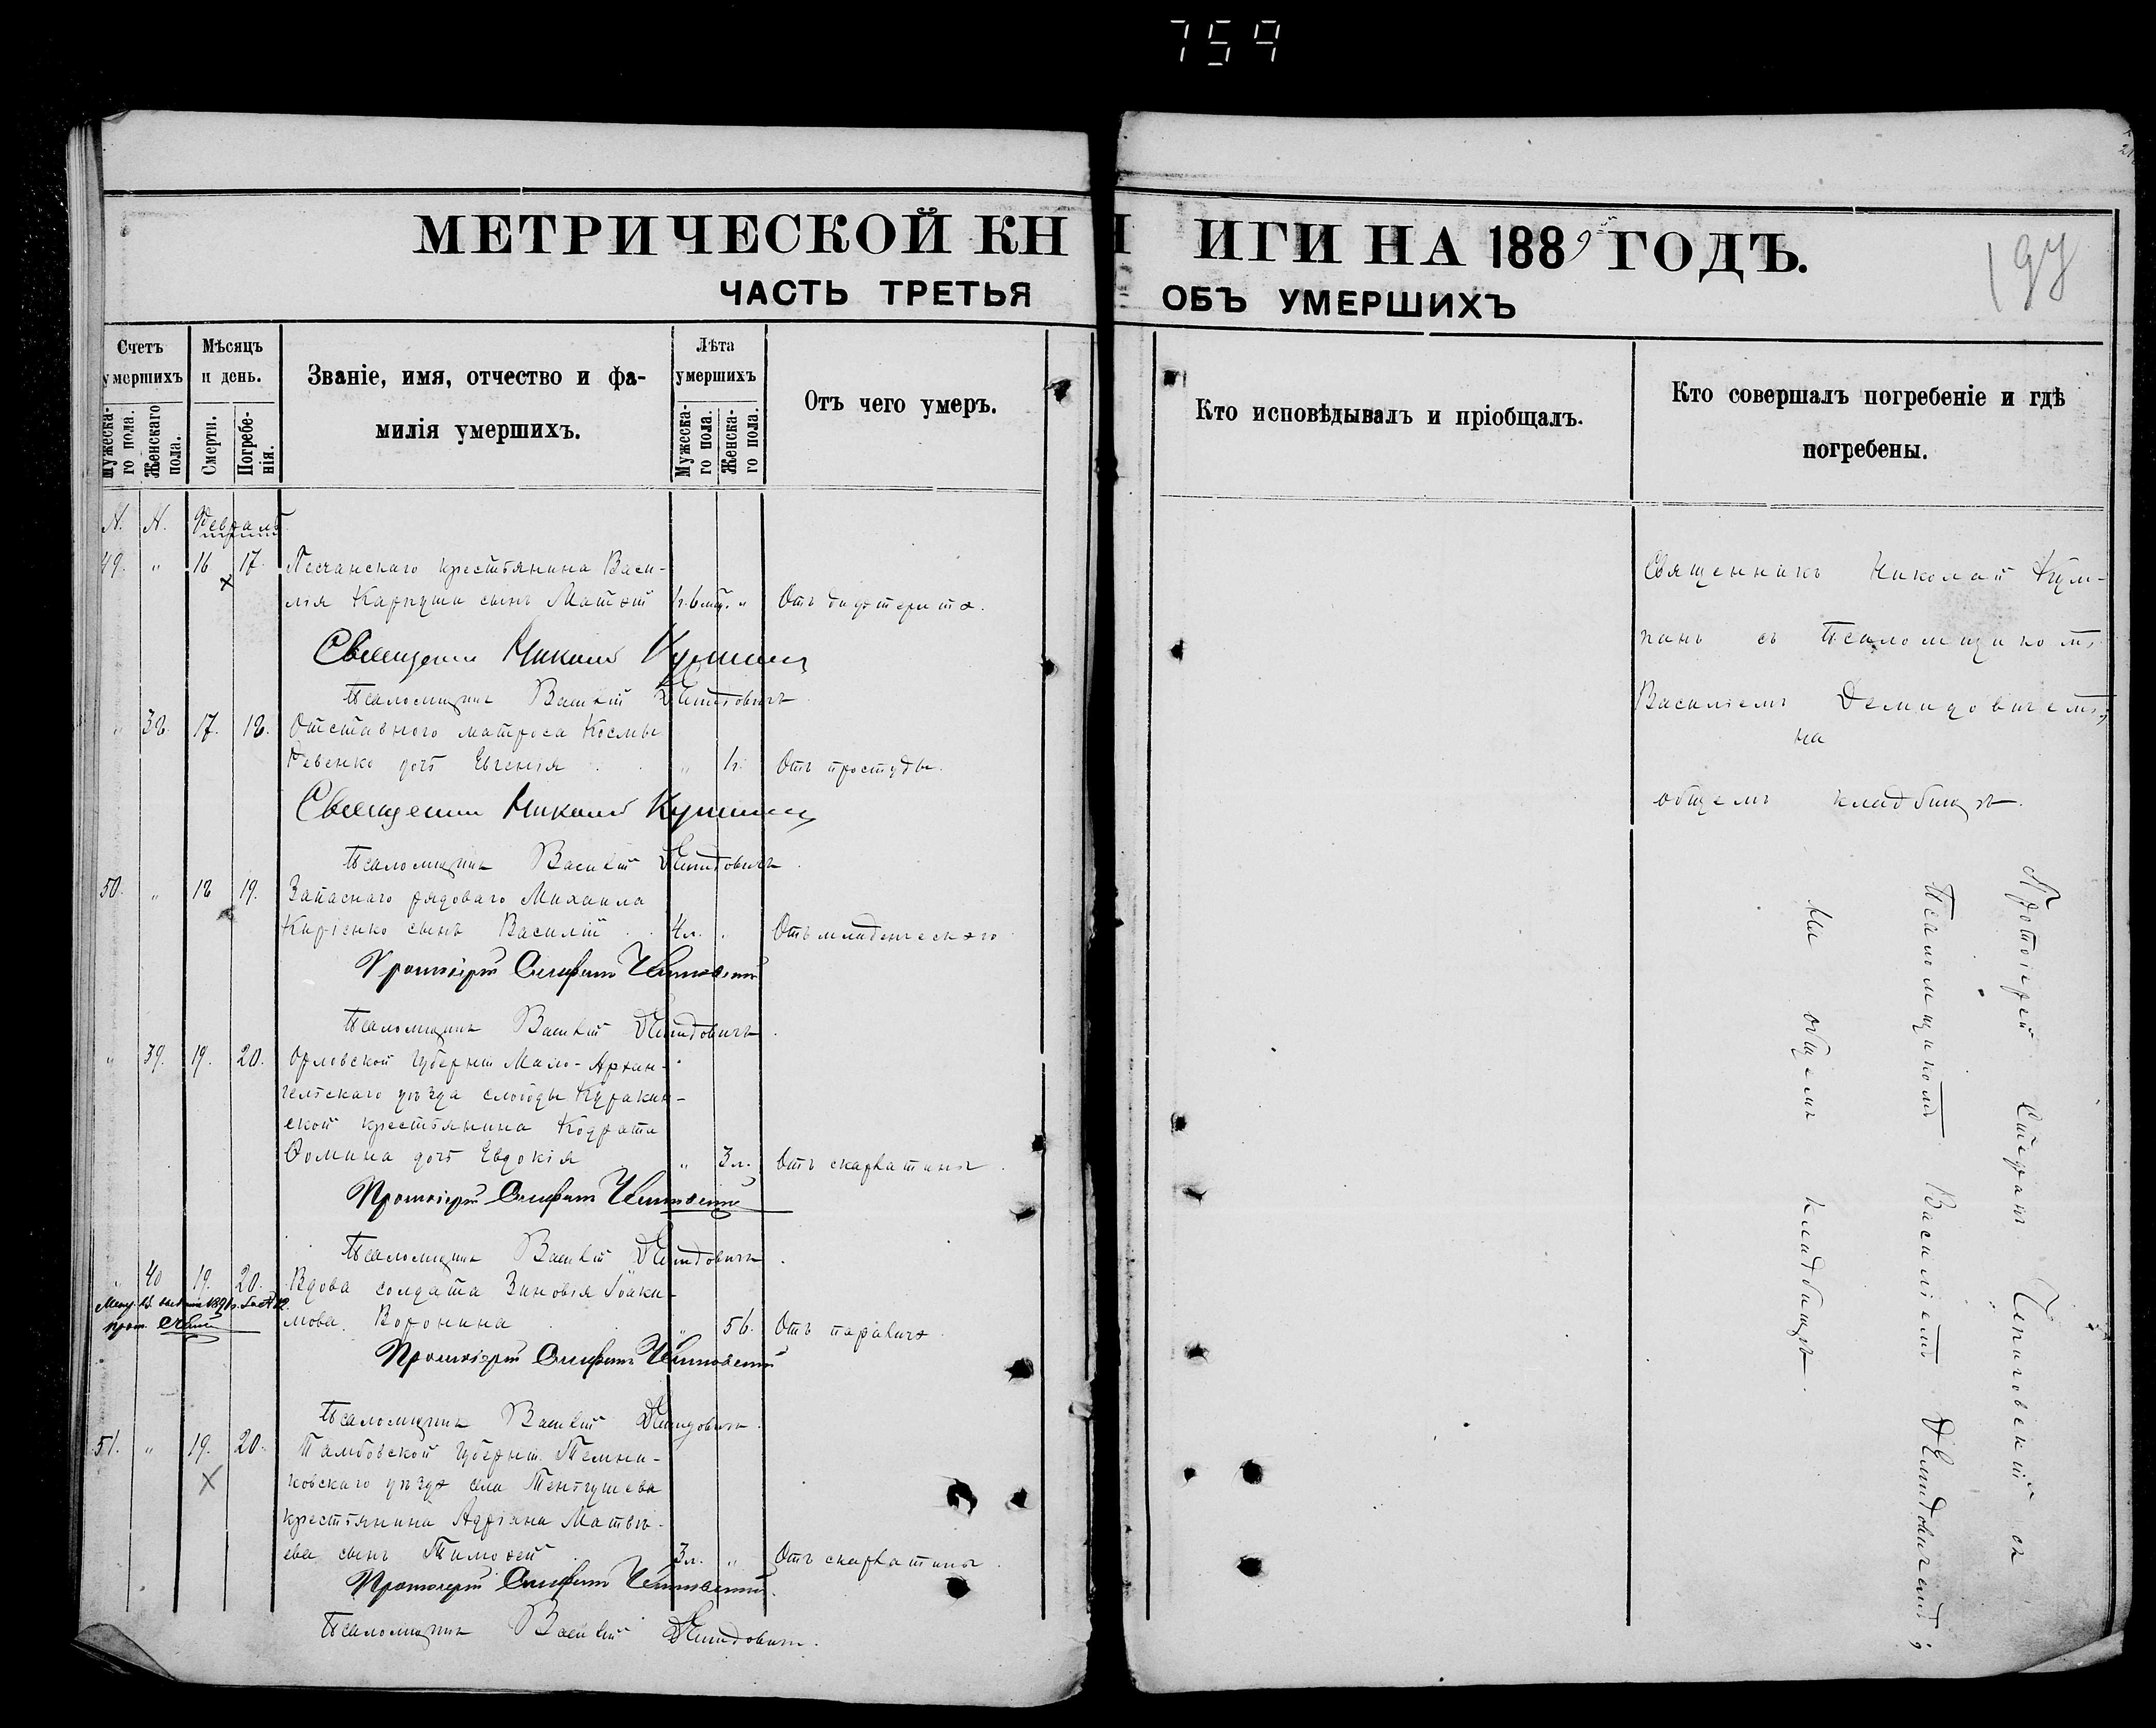 759
МЕТРИЧЕСКОЙ КН
ЧАСТЬ ТРЕТЬЯ
Счетъ умершихъ
Мужеска-го пола.
Женскаго пола.
Мѣсяцъ и день.
Смерти.
Погребе-нія.
Званіе, имя, отчество и фа-
милія умершихъ.
Лѣта умершихъ
Мужеска-го пола.
Женска-го пола.
Отъ чего умеръ.
Февраль
49. " 16 17. Песчанскаго крестьянина Васи-
лія Карпуши сынъ Матѳей " Отъ дифтерита.
Священникъ Николай
Псаломщикъ Василій Демидовичъ
" 38. 17. 18. Отставного матроса Космы
Ревенко дочь Евгенія " 1г. Отъ простуды.
Священникъ Николай
Псаломщикъ Василій Демидовичъ.
50. " 18 19. Запаснаго рядоваго Михаила
Кириенко сынъ Василій 4л. Отъ младенческаго
Протоіерей Стефанъ
Псаломщикъ Василій Демидовичъ.
" 39. 19. 20. Орловской губерніи Мало-Архан-
гельскаго уѣзда слободы Куракин-
ской крестьянина Кодрата
Ѳомина дочь Евдокія " 3л. Отъ скарлатины.
Протоіерей Стефанъ
Псаломщикъ Василій Демидовичъ.
" 40 19. 20. Вдова солдата Зиновія Іоаки-
мова Воронина " 56. Отъ паралича.
Протоіерей Стефанъ
Псаломщикъ Василій Демидовичъ.
51. " 19. 20. Тамбовской губерніи Темни-
ковскаго уѣзда села Теньгушева
крестьянина Адріана Матвѣ-
ева сынъ Тимоѳей 3л. " Отъ скарлатины.
Протоіерей Стефанъ
Псаломщикъ Василій Демидовичъ.
ИГИ НА 1889й ГОДЪ.
ОБЪ УМЕРШИХЪ
197
Кто исповѣдывалъ и пріобщалъ.
Кто совершалъ погребеніе и гдѣ
погребены.
Священникъ Николай
съ Псаломщикомъ
Василіемъ Демидовичемъ;
на
общемъ кладбищѣ.
Протоіерей Стефанъ съ
Псаломщикомъ Василіемъ Демидовичемъ;
на общемъ кладбищѣ.